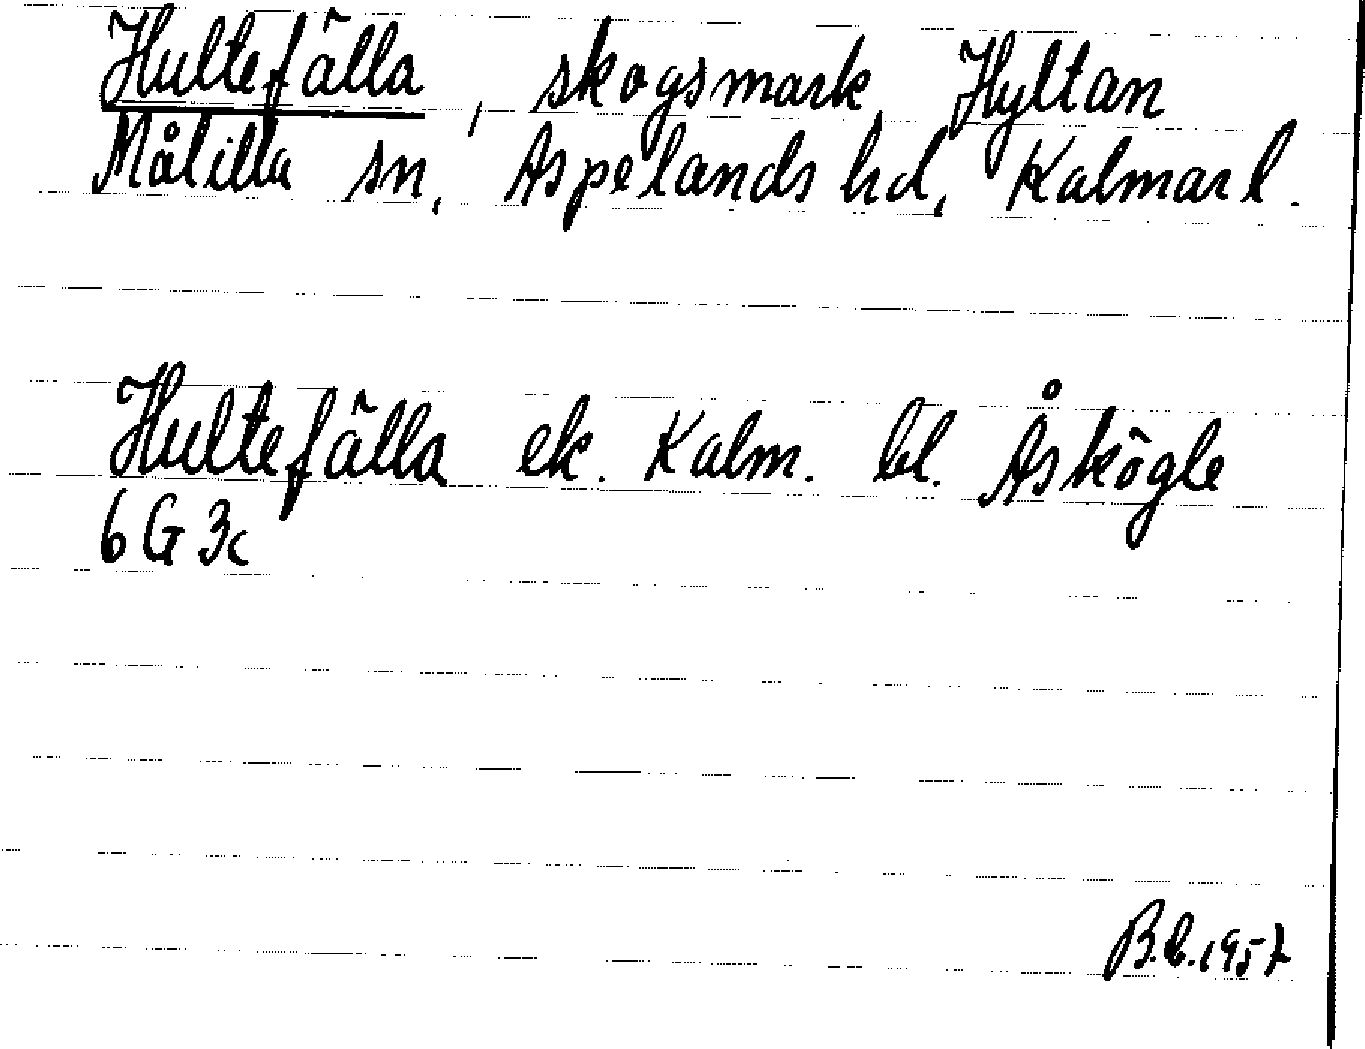 Hultefälla, skogsmark, Hyltan
Målilla sn, Aspelands hd, Kalmar l.
Hultefälla ek. Kalm. bl. Åskögle
6G 3c
B.b. 1957